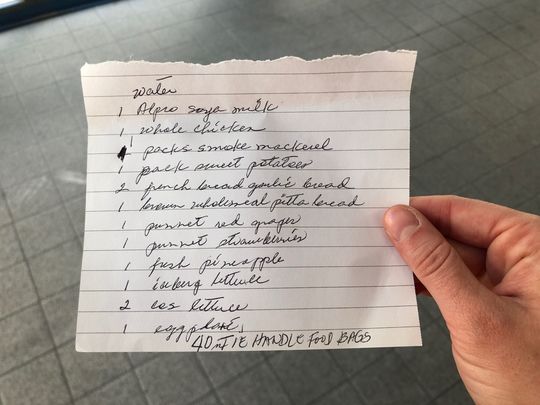 water
1 Alpro soya milk
1 whole chicken
1 packs smoke mackerel
1 pack sweet potatoes
2 french bread garlic bread
1 brown wholemeal pitta bread
1 punnet red grapes
1 punnet strawberries
1 fresh pineapple
1 iceberg lettuce
2 cos lettuce
1 eggplant
40 TIE HANDLE FOOD BAGS